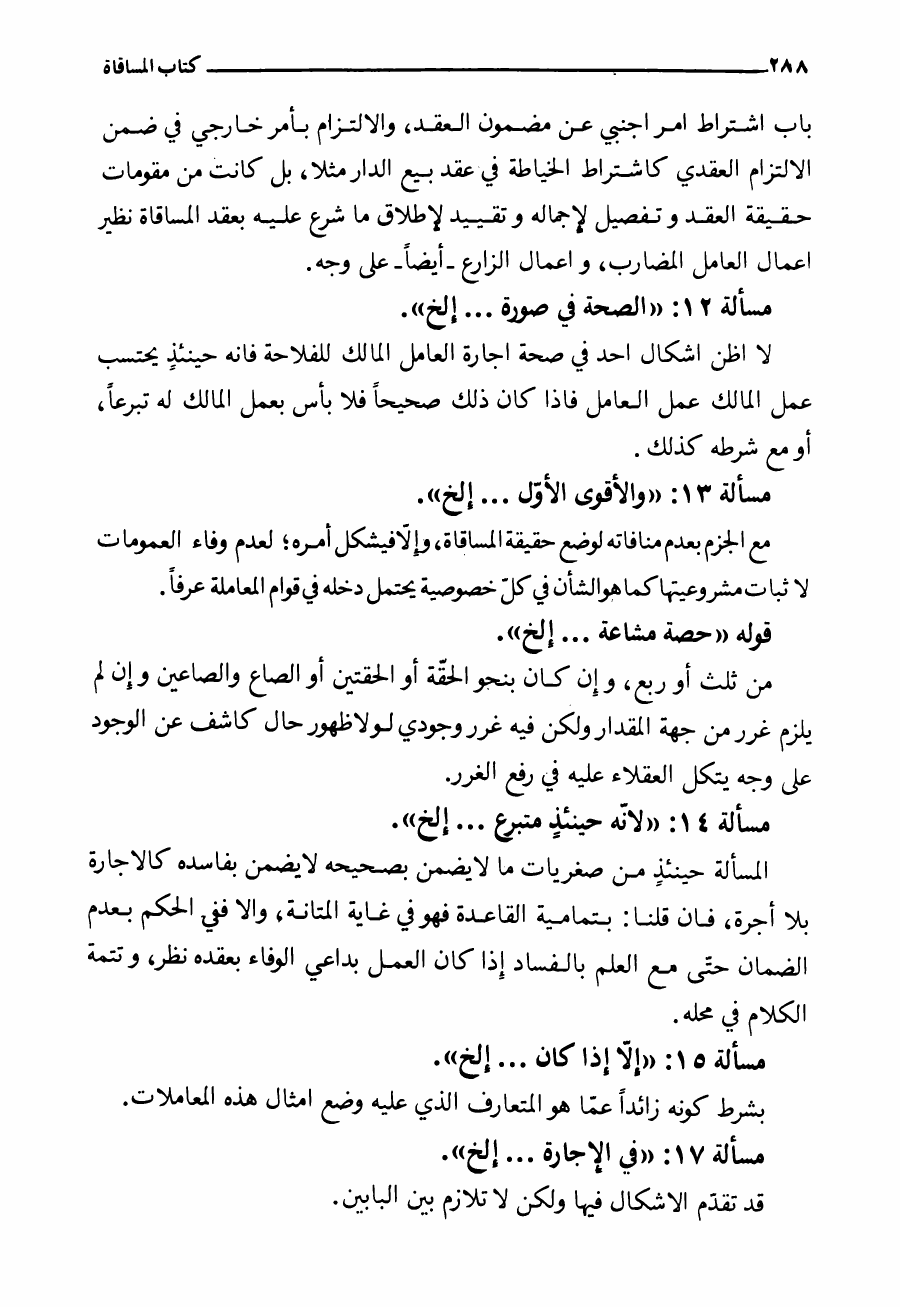 ٢٨٨ كتاب المساقاة
باب اشتراط امر اجنبي عن مضمون العقد، والالتزام بأمر خارجي في ضمن
الالتزام العقدي كاشتراط الخياطة في عقد بيع الدار مثلا، بل كانت من مقومات
حقيقة العقد و تفصيل لإجماله و تقييد لإطلاق ما شرع عليه بعقد المساقاة نظير
اعمال العامل المضارب، و اعمال الزارع ـ أيضاً ـ على وجه.
مسألة ١٢: «الصحة في صورة ... إلخ».
لا اظن اشكال احد في صحة اجارة العامل المالك للفلاحة فانه حينئذٍ يحتسب
عمل المالك عمل العامل فاذا كان ذلك صحيحاً فلا بأس بعمل المالك له تبرعاً،
أو مع شرطه كذلك.
مسألة ١٣: «والأقوى الأوّل ... إلخ».
مع الجزم بعدم منافاته لوضع حقيقة المساقاة، وإلّا فيشكل أمره؛ لعدم وفاء العمومات
لا ثبات مشروعيتها كما هو الشأن في كلّ خصوصية يحتمل دخله في قوام المعاملة عرفاً.
قوله «حصة مشاعة ... إلخ».
من ثلث أو ربع، و إن كان بنحو الحقّة أو الحقتين أو الصاع والصاعين و إن لم
يلزم غرر من جهة المقدار ولكن فيه غرر وجودي لولا ظهور حال كاشف عن الوجود
على وجه يتكل العقلاء عليه في رفع الغرر.
مسألة ١٤: «لانّه حينئذٍ متبرع ... إلخ».
المسألة حينئذٍ من صغريات ما لا يضمن بصحيحه لا يضمن بفاسده كالاجارة
بلا أجرة، فان قلنا: بتمامية القاعدة فهو في غاية المتانة، والا ففي الحكم بعدم
الضمان حتّى مع العلم بالفساد إذا كان العمل بداعي الوفاء بعقده نظر، و تتمة
الكلام في محله.
مسألة ١٥: «إلّا إذا كان ... إلخ».
بشرط كونه زائداً عمّا هو المتعارف الذي عليه وضع امثال هذه المعاملات.
مسألة ١٧: «في الإجارة ... إلخ».
قد تقدّم الاشكال فيها ولكن لا تلازم بين البابين.